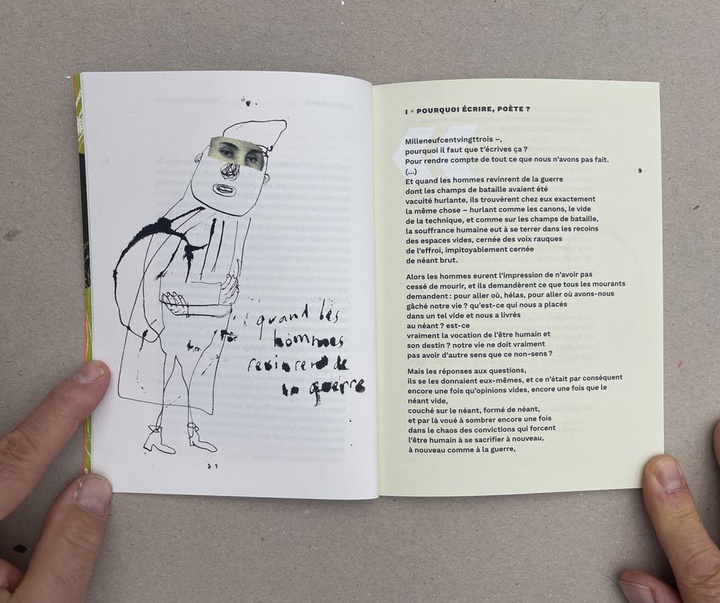 quand les
hommes
revinrent de
la guerre
I - POURQUOI ÉCRIRE, POÈTE ?
Milleneufcentvingttrois –,
pourquoi il faut que t'écrives ça ?
Pour rendre compte de tout ce que nous n'avons pas fait.
(...)
9
Et quand les hommes revinrent de la guerre
dont les champs de bataille avaient été
vacuité hurlante, ils trouvèrent chez eux exactement
la même chose – hurlant comme les canons, le vide
de la technique, et comme sur les champs de bataille,
la souffrance humaine eut à se terrer dans les recoins
des espaces vides, cernée des voix rauques
de l'effroi, impitoyablement cernée
de néant brut.
Alors les hommes eurent l'impression de n'avoir pas
cessé de mourir, et ils demandèrent ce que tous les mourants
demandent : pour aller où, hélas, pour aller où avons-nous
gâché notre vie ? qu'est-ce qui nous a placés
dans un tel vide et nous a livrés
au néant ? est-ce
vraiment la vocation de l'être humain et
son destin ? notre vie ne doit vraiment
pas avoir d'autre sens que ce non-sens ?
Mais les réponses aux questions,
ils se les donnaient eux-mêmes, et ce n'était par conséquent
encore une fois qu'opinions vides, encore une fois que le
néant vide,
couché sur le néant, formé de néant,
et par là voué à sombrer encore une fois
dans le chaos des convictions qui forcent
l'être humain à se sacrifier à nouveau,
à nouveau comme à la guerre,